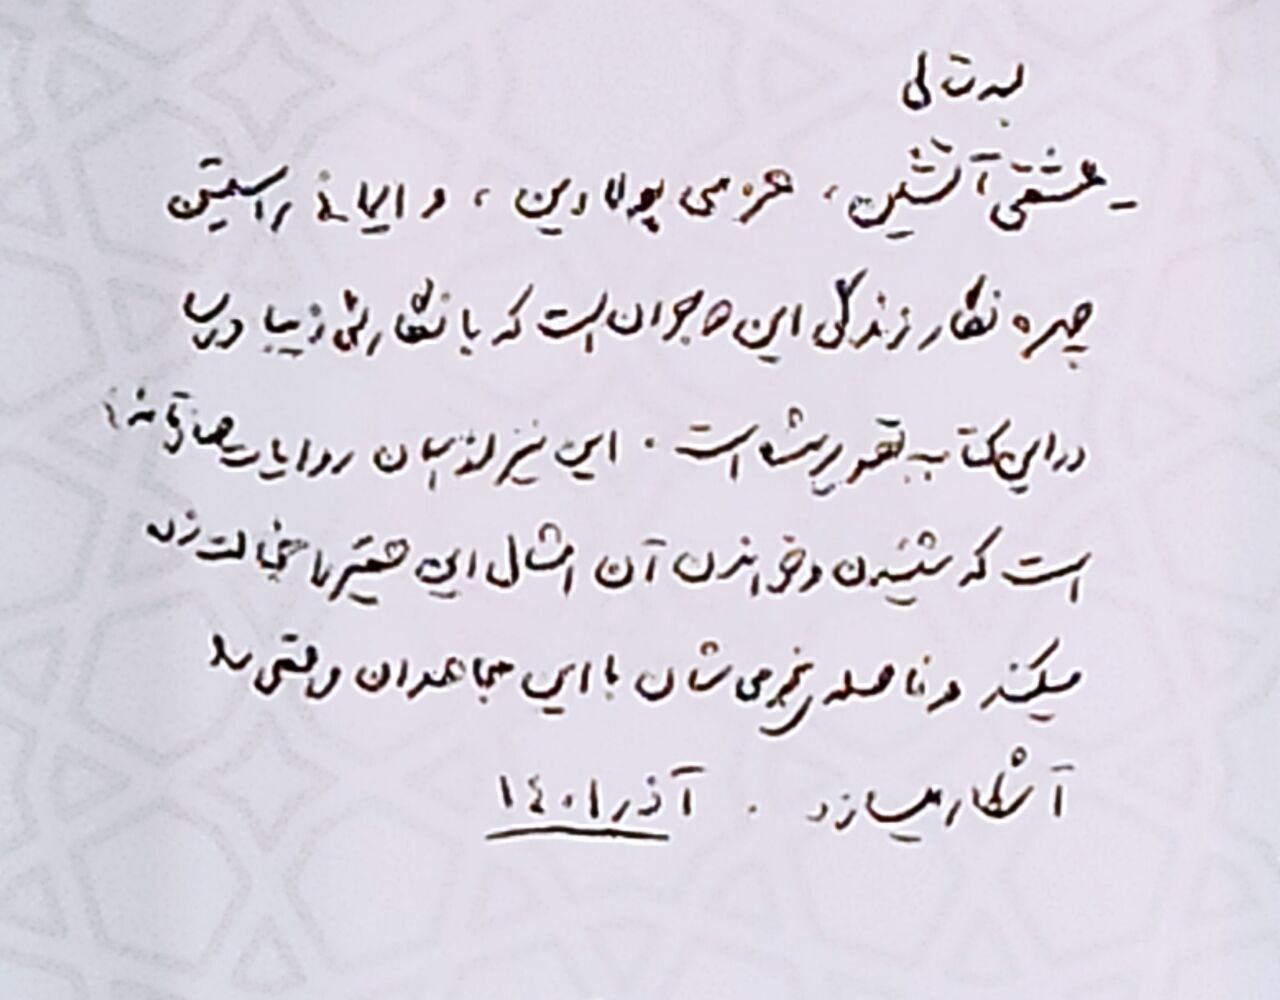 بسمه تعالی
ـ عشقی آتشین، عزمی پولادین، و ایمانی راستین
چهره نگار زندگی این جوان است که با نگارشی زیبا و رسا
در این کتاب تصویر شده است. این نیز از آسان روایات صادقانه‌ای
است که شنیدن و خواندن آن امثال این حقیر را خجالت زده
میکند و فاصله نجومی شان با این مجاهدان واقعی را
آشکار میسازد. آذر ۱۴۰۱